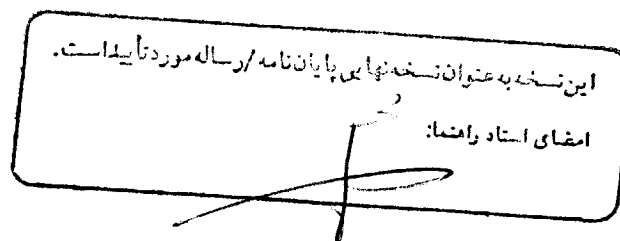 این نسخه به عنوان نسخه نهایی پایان نامه / رساله مورد تأیید است.
امضای استاد راهنما: